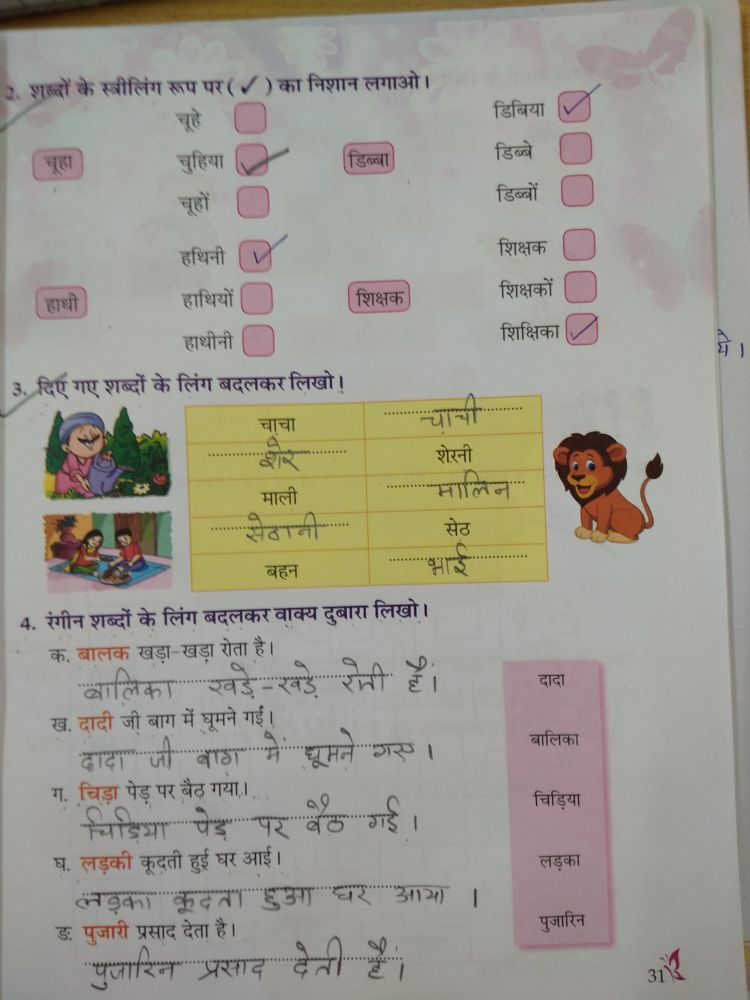 2. शब्दों के स्त्रीलिंग रूप पर ( ✓ ) का निशान लगाओ।
चूहा
चूहे
चुहिया ✓
चूहों
डिब्बा
डिबिया ✓
डिब्बे
डिब्बों
हाथी
हथिनी ✓
हाथियों
हाथीनी
शिक्षक
शिक्षक
शिक्षकों
शिक्षिका ✓
ये।
3. दिए गए शब्दों के लिंग बदलकर लिखो।
चाचा चाची
शेर शेरनी
माली मालिन
सेठानी सेठ
बहन भाई
4. रंगीन शब्दों के लिंग बदलकर वाक्य दुबारा लिखो।
क. बालक खड़ा-खड़ा रोता है।
बालिका खड़े-खड़े रोती है।
ख. दादी जी बाग में घूमने गईं।
दादा जी बाग में घूमने गए।
ग. चिड़ा पेड़ पर बैठ गया।
चिडिया पेड़ पर बैठ गई।
घ. लड़की कूदती हुई घर आई।
लड़का कूदता हुआ घर आया।
ङ. पुजारी प्रसाद देता है।
पुजारिन प्रसाद देती है।
दादा
बालिका
चिड़िया
लड़का
पुजारिन
31